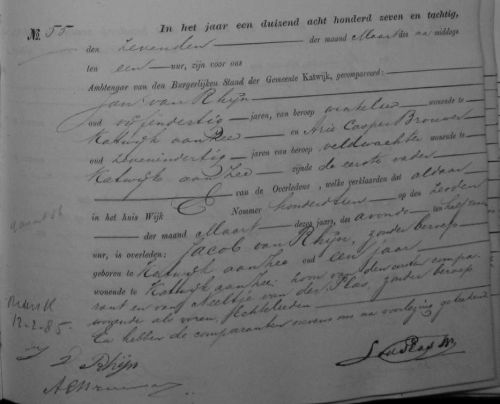 No. 55
In het jaar een duizend acht honderd zeven en tachtig,
den zevenden der maand Maart des na middags
ten een uur, zijn voor ons
Ambtenaar van den Burgerlijken Stand der Gemeente Katwijk, gecompareerd:
Jan van Rhijn
oud vijfendertig jaren, van beroep wonende te
Katwijk aan Zee en Arie Casper Brouwer
oud jaren van beroep veldwachter wonende te
Katwijk aan Zee zijnde de eerste vader
van de Overledene, welke verklaarden dat aldaar
in het huis Wijk E Nommer honderdtien op den zesden
der maand Maart dezes jaars, des avonds ten half een
uur, is overleden: Jacob van Rhijn, zonder beroep
geboren te Katwijk aan Zee oud een jaar
wonende te Katwijk aan Zee, zoon van den eersten compa-
rant en van Neeltje van der Plas, zonder beroep
wonende als voren, Echtelieden
En hebben de comparanten nevens ons na voorlezing geteekend
12-2-85.
J v Rhijn